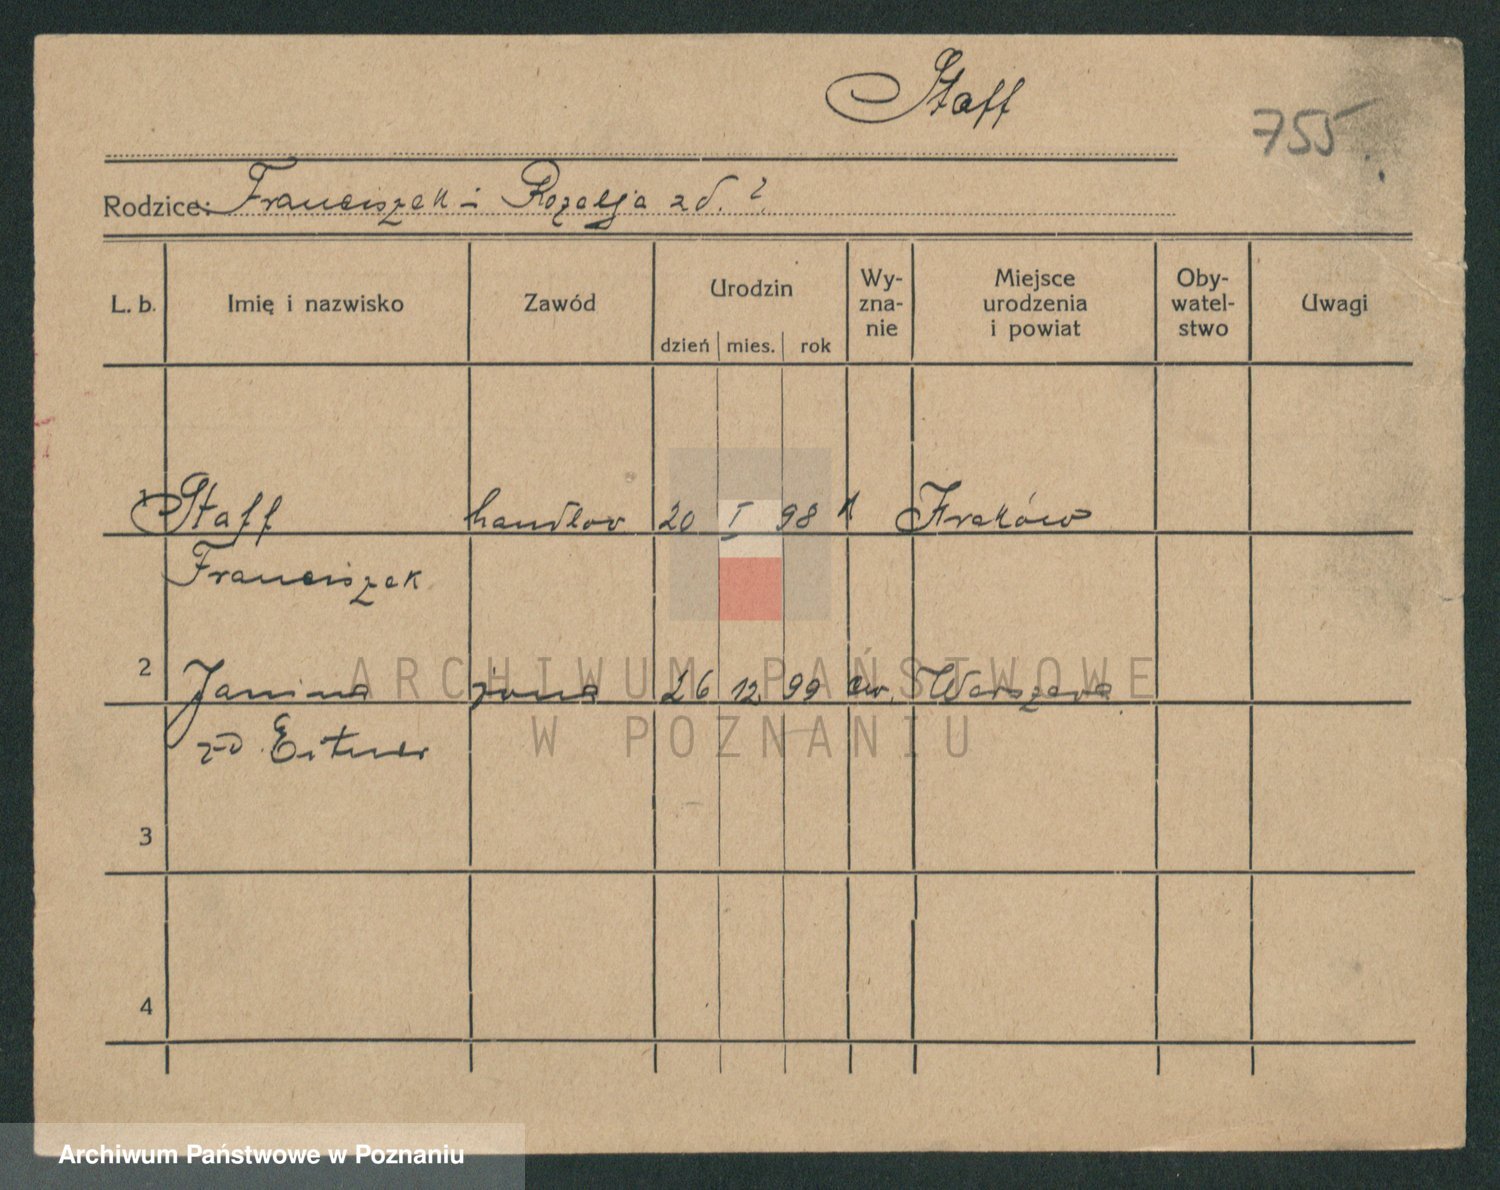 Staff
755
Rodzice: Franciszek i Rozalja zd. ?
L. b. Imię i nazwisko Zawód Urodzin dzień mies. rok Wy-zna-nie Miejsce urodzenia i powiat Oby-watel-stwo Uwagi
1 Staff handlov 20 I 98 Kraków
Franciszek
2 Janina żona 26 12 99 ew. Warszava
zd Eitner
3
4
ARCHIWUM PAŃSTWOWE
W POZNANIU
Archiwum Państwowe w Poznaniu